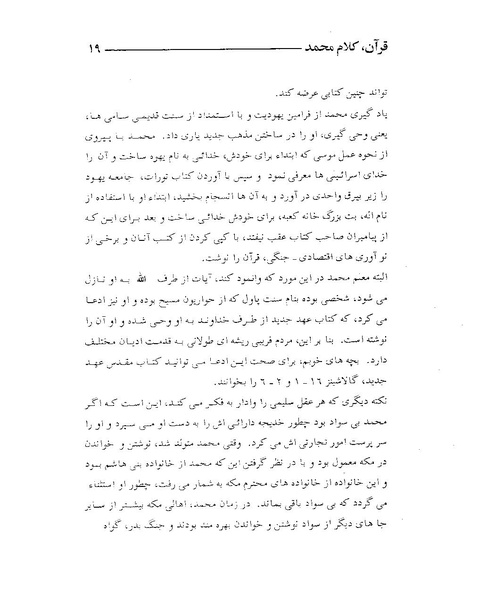 قرآن، کلام محمد ــــــــــــــــــــ ۱۹
تواند چنین کتابی عرضه کند.
یاد گیری محمد از فرامین یهودیت و با استمداد از سنت قدیمی سامی ها،
یعنی وحی گیری، او را در ساختن مذهب جدید یاری داد. محمد با پیروی
از نحوه عمل موسی که ابتداء برای خودش، خدائی به نام یهوه ساخت و آن را
خدای اسرائیلی ها معرفی نمود و سپس با آوردن کتاب تورات، جامعه یهود
را زیر بیرق واحدی در آورد و به آن ها انسجام بخشید، ابتداء او با استفاده از
نام الله، بت بزرگ خانه کعبه، برای خودش خدائی ساخت و بعد برای این که
از پیامبران صاحب کتاب عقب نیفتد، با کپی کردن از کتب آنان و برخی از
نو آوری های اقتصادی ـ جنگی، قرآن را نوشت.
البته معلم محمد در این مورد که وانمود کند، آیات از طرف الله به او نازل
می شود، شخصی بوده بنام سنت پاول که از حواریون مسیح بوده و او نیز ادعا
می کرد، که کتاب عهد جدید از طرف خداوند به او وحی شده و او آن را
نوشته است. بنا بر این، مردم فریبی ریشه ای طولانی به قدمت ادیان مختلف
دارد. بچه های خوبم، برای صحت این ادعا می توانید کتاب مقدس عهد
جدید، گالاشینز ۱۶ ـ ۱ و ۲ ـ ۶ را بخوانند.
نکته دیگری که هر عقل سلیمی را وادار به فکر می کند، این است که اگر
محمد بی سواد بود چطور خدیجه دارائی اش را به دست او می سپرد و او را
سر پرست امور تجارتی اش می کرد. وقتی محمد متولد شد، نوشتن و خواندن
در مکه معمول بود و با در نظر گرفتن این که محمد از خانواده بنی هاشم بود
و این خانواده از خانواده های محترم مکه به شمار می رفت، چطور او استثناء
می گردد که بی سواد باقی بماند. در زمان محمد، اهالی مکه بیشتر از سایر
جا های دیگر از سواد نوشتن و خواندن بهره مند بودند و جنگ بدر، گواه